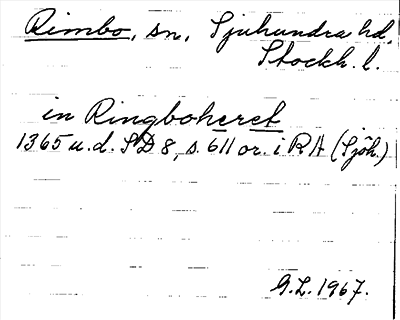 Rimbo, sn, Sjuhundra hd,
Stockh. l.
in Ringboheret
1365 u.d. SD 8, s. 611 or. i RA (Sjöh.)
G.L. 1967.